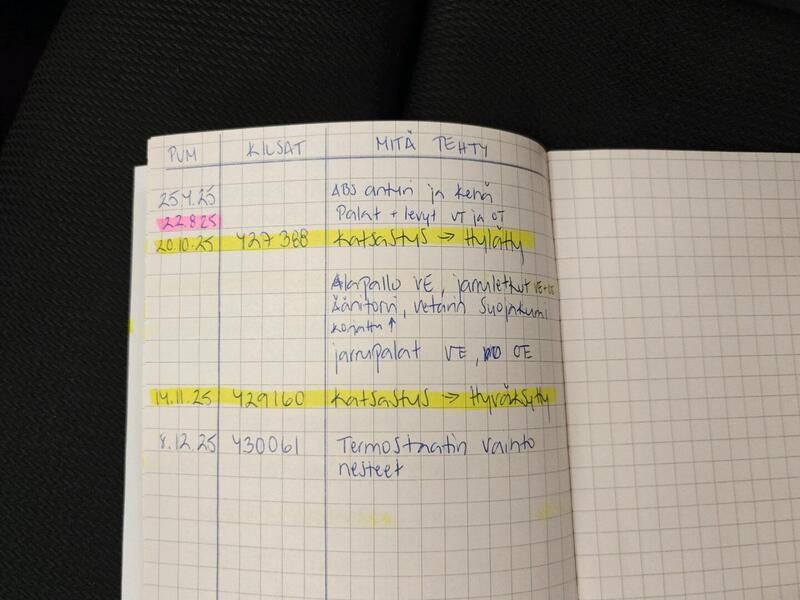 PVM KILSAT MITÄ TEHTY
25.4.25 ABS anturi ja kehä
22.8.25 Palat + levyt VT ja OT
20.10.25 427388 Katsastus → Hylätty
Alapallo VE, jarruletkut VE+OE
Äänitorvi, vetarin suojakumi
korjattu ↑
jarrupalat VE, OE
14.11.25 429160 Katsastus → Hyväksytty
8.12.25 430061 Termostaatin vaihto
nesteet